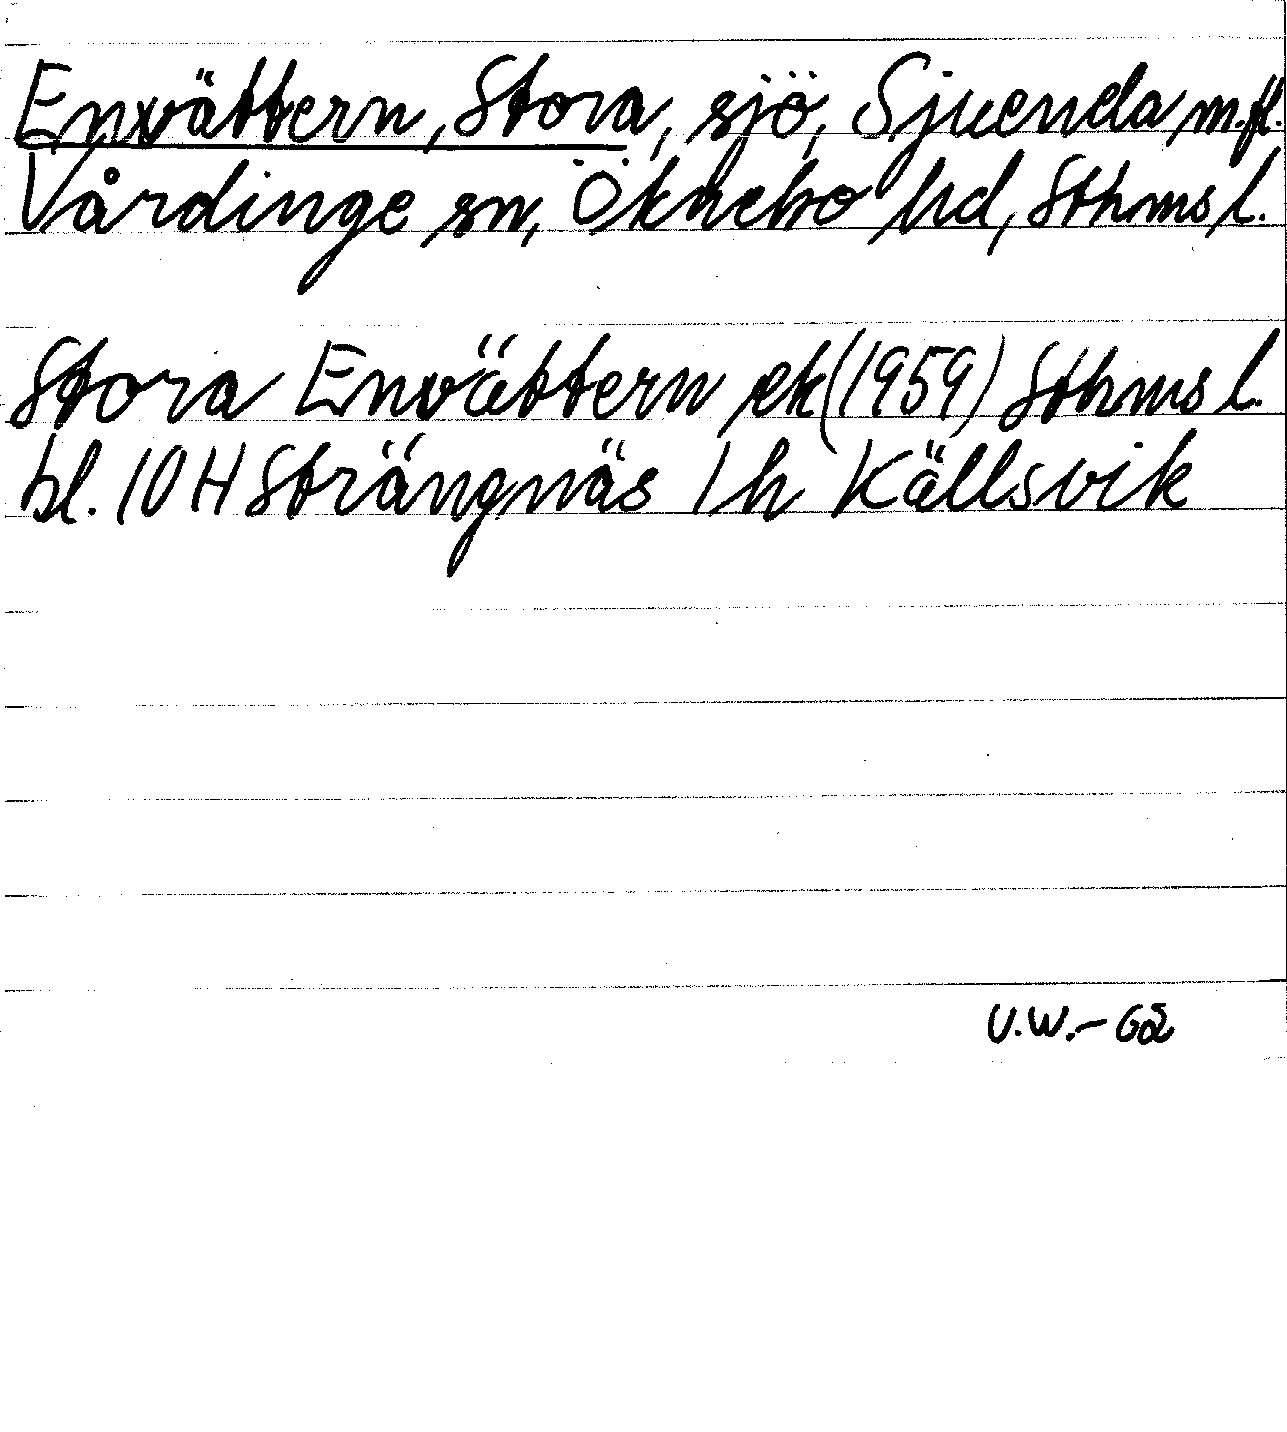 Envättern, Stora, sjö, Sjuenda m.fl.
Vårdinge sn, Öknebo hd, Sthms l.
Stora Envättern ek (1959) Sthms l.
bl. 10 H Strängnäs 1 h Källsvik
U.W.-